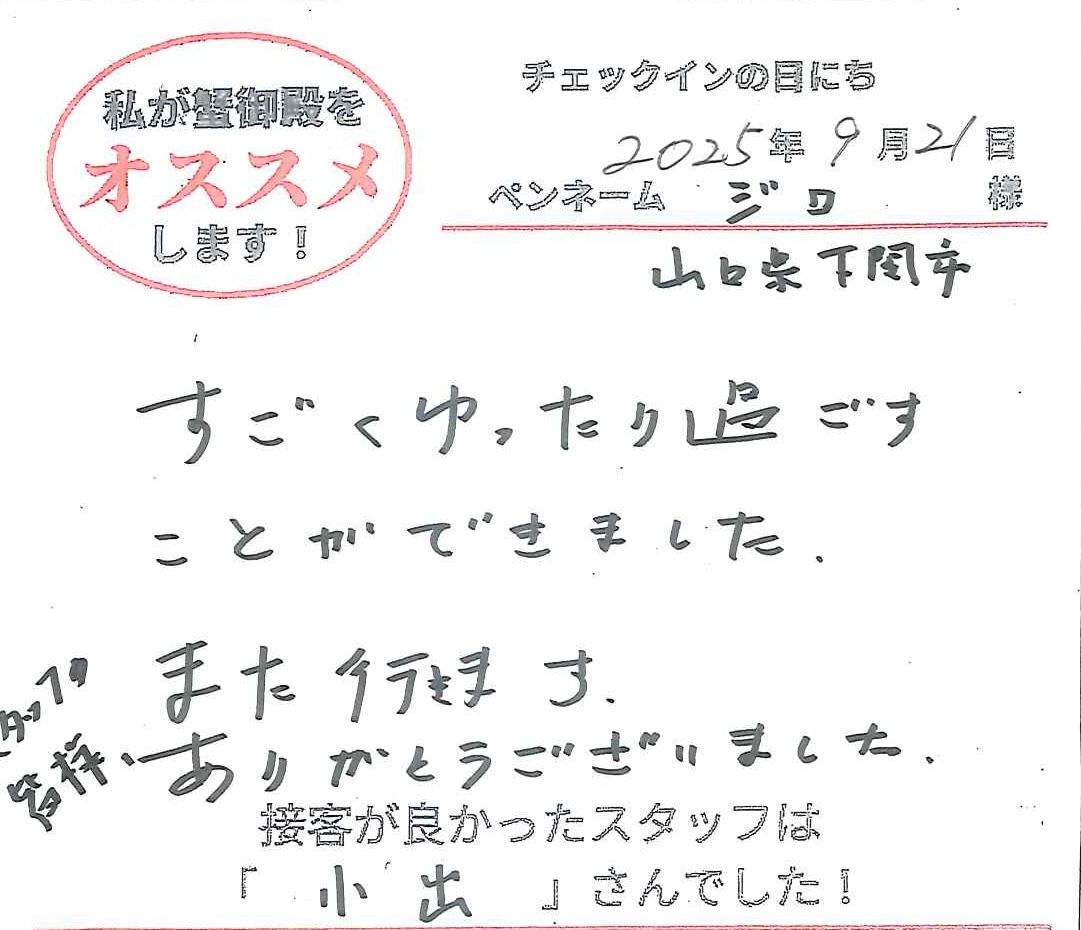 私が蟹御殿を
オススメ
します!
チェックインの日にち
2025年 9月21日
ペンネーム ジロ 様
山口県下関市
すごくゆったり過ごす
ことができました.
また行きます.
スタッフの
皆様、ありがとうございました.
接客が良かったスタッフは
「 小出 」さんでした!